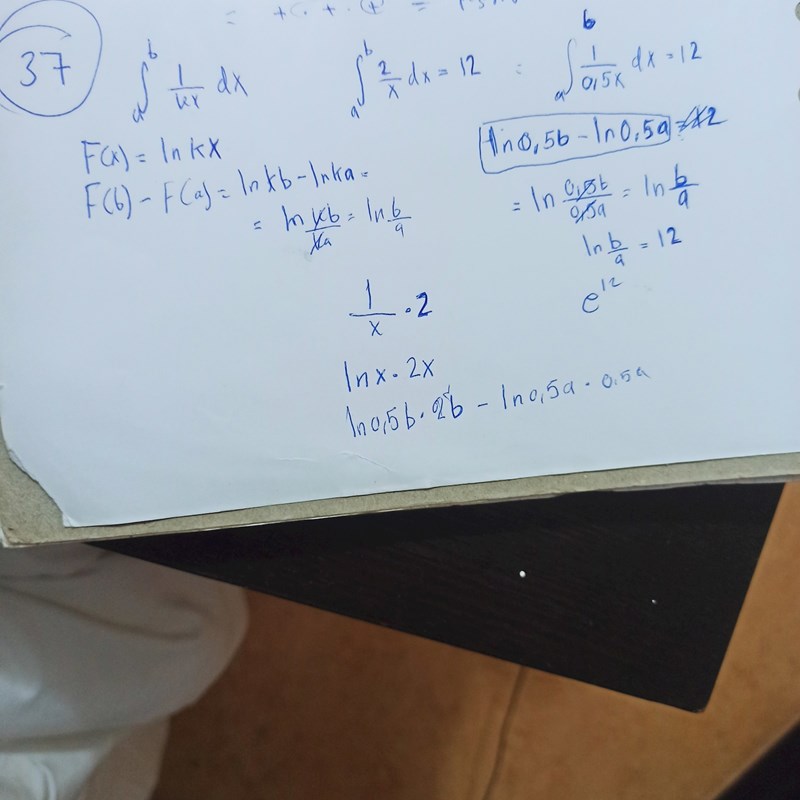 37
∫_a^b 1/kx dx
∫_a^b 2/x dx = 12 : ∫_a^b 1/0,5x dx = 12
F(x) = ln kx
F(b) - F(a) = ln kb - ln ka =
= ln kb/ka = ln b/a
ln 0,5b - ln 0,5a = 12
= ln 0,5b/0,5a = ln b/a
ln b/a = 12
e^12
1/x · 2
ln x · 2x
ln 0,5b · 2b - ln 0,5a · 0,5a